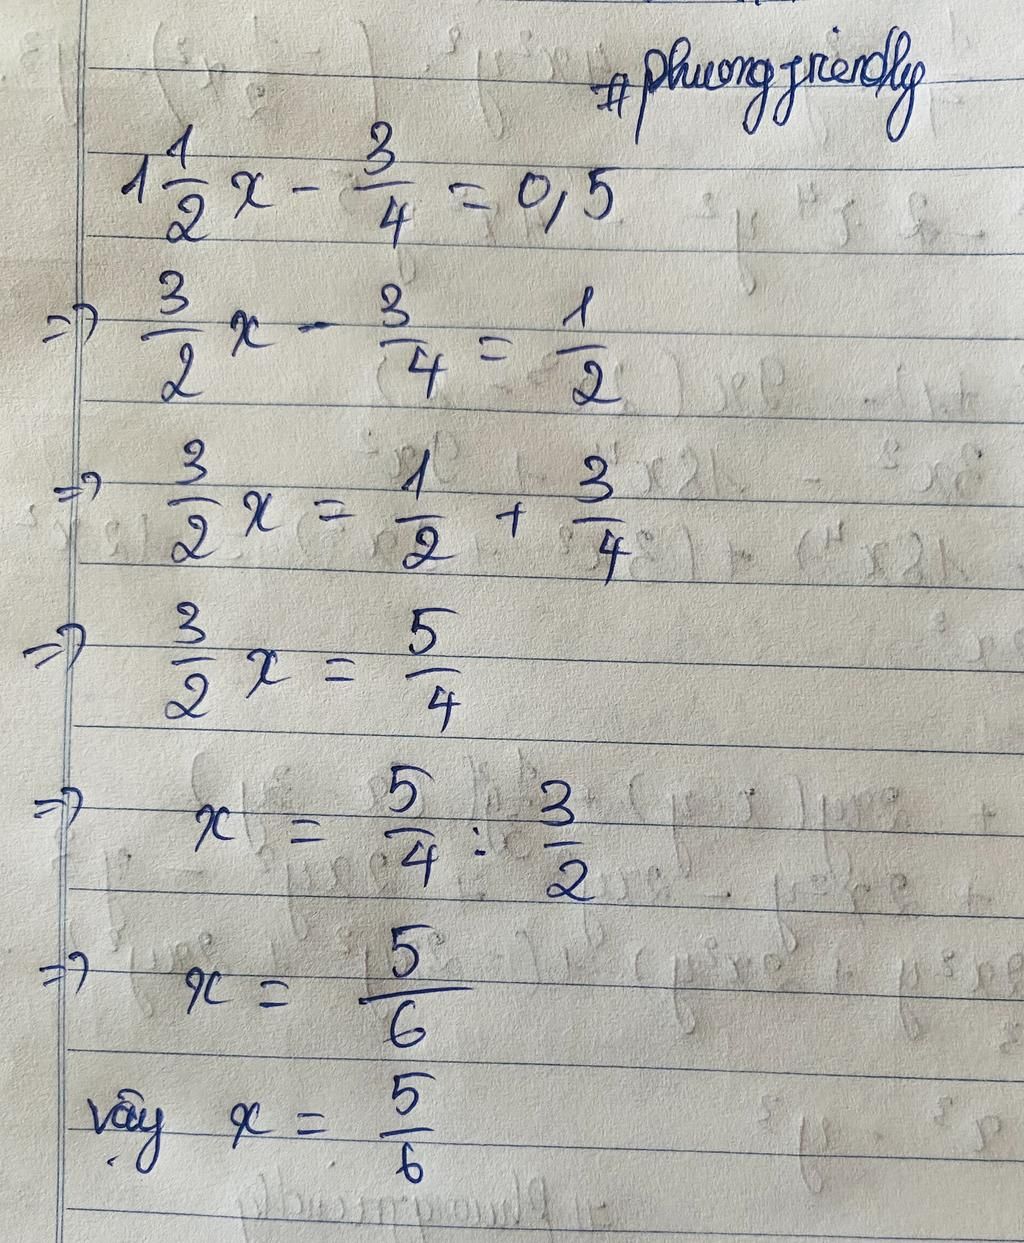 #phuongfriendly
1 1/2 x - 3/4 = 0,5
=> 3/2 x - 3/4 = 1/2
=> 3/2 x = 1/2 + 3/4
=> 3/2 x = 5/4
=> x = 5/4 : 3/2
=> x = 5/6
vậy x = 5/6